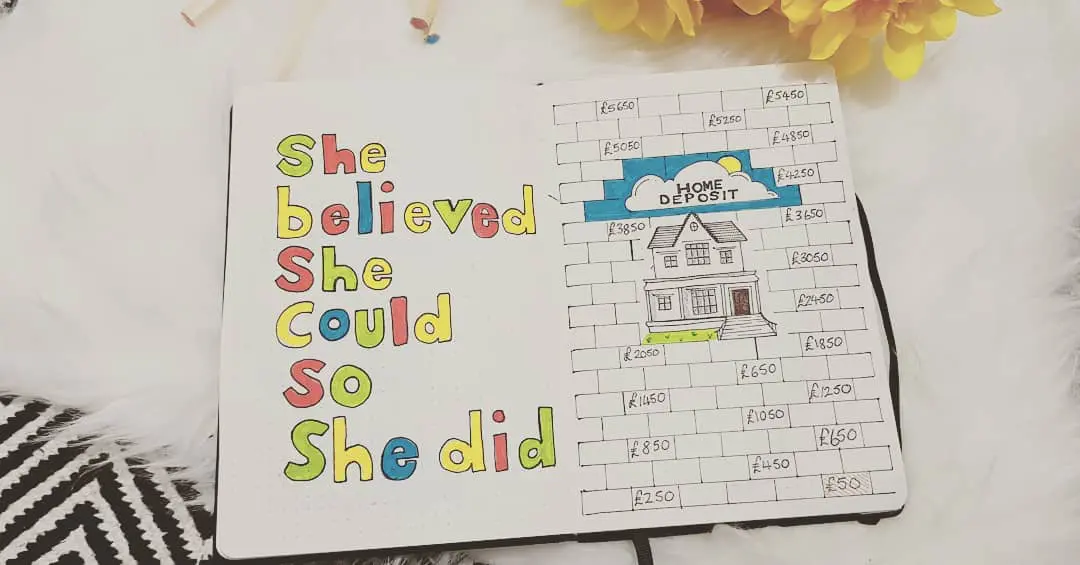 She
believed
She
Could
So
She did
£5650 £5450
£5250
£5050 £4850
HOME
DEPOSIT
£4250
£3850 £3650
£3050
£2450
£2050 £1850
£650
£1450 £1250
£1050
£850 £650
£450
£250 £50